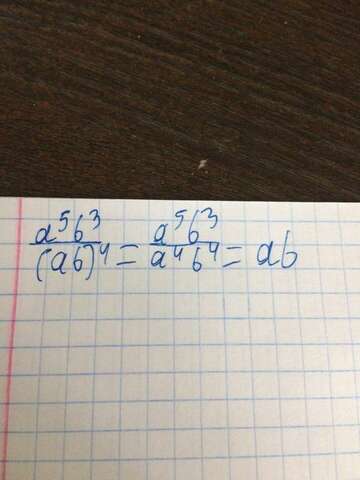 a⁵b³/(ab)⁴ = a⁵b³/a⁴b⁴ = ab